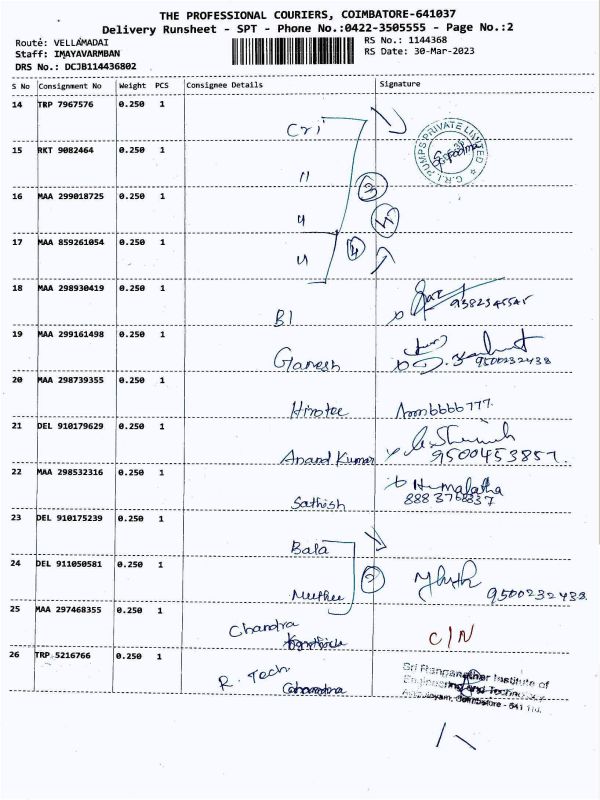 THE PROFESSIONAL COURIERS, COIMBATORE-641037
Delivery Runsheet - SPT - Phone No.:0422-3505555 - Page No.:2
Route: VELLAMADAI
RS No.: 1144368
Staff: IMAYAVARMBAN
RS Date: 30-Mar-2023
DRS No.: DCJB114436802
S No Consignment No Weight PCS Consignee Details Signature
14 TRP 7967576 0.250 1
Cri
C.R.I. PUMPS PRIVATE LIMITED
15 RKT 9082464 0.250 1
11
3
16 MAA 299018725 0.250 1
4
17 MAA 859261054 0.250 1
4
18 MAA 298930419 0.250 1
BI
9382345545
19 MAA 299161498 0.250 1
Ganesh
9500232438
20 MAA 298739355 0.250 1
Hirotec
6666777.
21 DEL 910179629 0.250 1
Anand Kumar
9500453857.
22 MAA 298532316 0.250 1
Sathish
Hemalatha
23 DEL 910175239 0.250 1
Bala
24 DEL 911050581 0.250 1
2
Muthu
9500232438
25 MAA 297468355 0.250 1
Chandra
C/N
26 TRP 5216766 0.250 1
R. Tech
Chandra
Sri Ranganathar Institute of
Engineering and Technology
Coimbatore - 641 110.